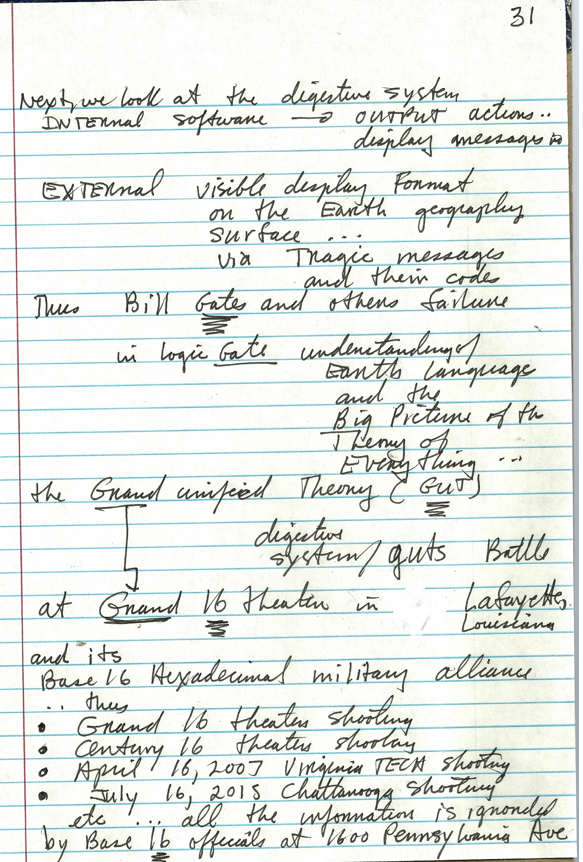 31
Next, we look at the digestive system
INTERNAL software → OUTPUT actions..
display messages in
EXTERNAL visible display Format
on the Earth geography
surface ...
via Tragic messages
and their codes
Thus Bill Gates and others failure
in logic Gate understanding of
Earth Language
and the
Big Picture of th
Theory of
Everything ...
the Grand unified Theory (GUT)
digestive
system/guts Battle
at Grand 16 theater in Lafayette,
Louisiana
and its
Base 16 Hexadecimal military alliance
.. thus
• Grand 16 theaters shooting
• Century 16 theaters shooting
• April 16, 2007 Virginia TECH shooting
• July 16, 2015 Chattanooga shooting
etc ... all the information is ignored
by Base 16 officials at 1600 Pennsylvania Ave